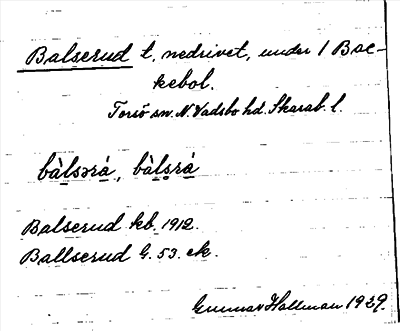 Balserud t, nedrivet, under 1 Bac-
kebol.
Torsö sn. N. Vadsbo hd. Skarab. l.
bàlsərá, bàlsrá
Balserud kb. 1912.
Ballserud G. 53. ek.
Gunnar Hallman 1929.